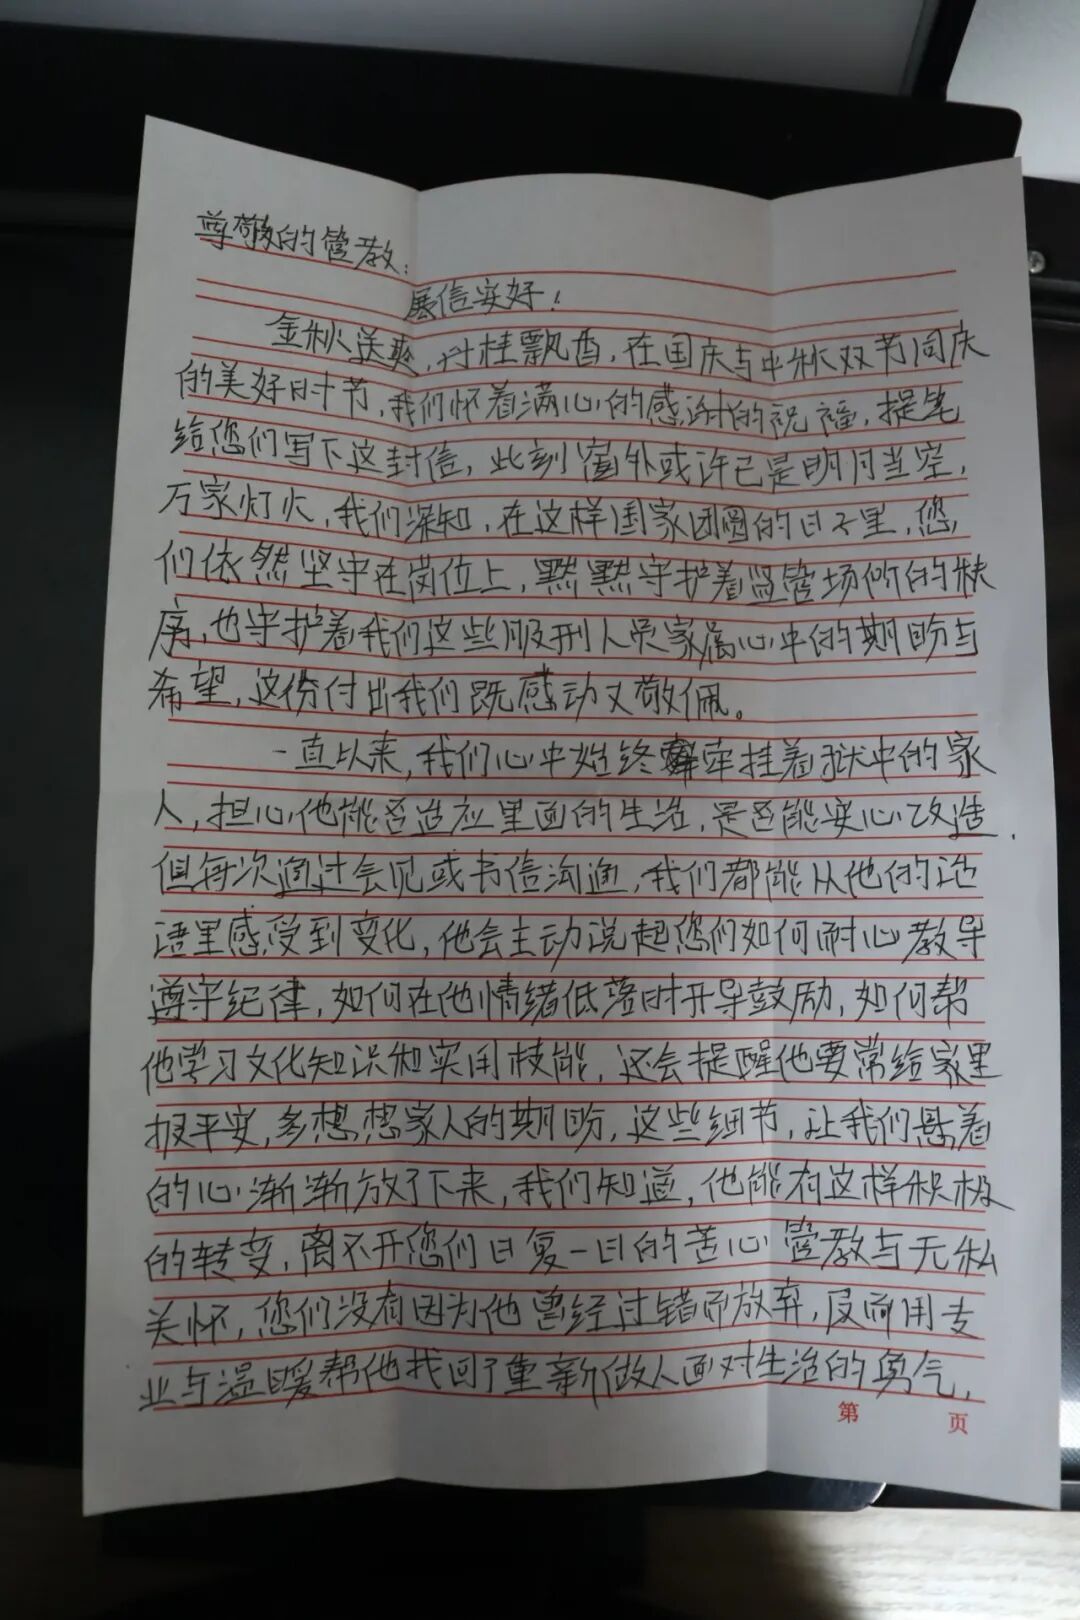 尊敬的管教：
展信安好！
金秋送爽，丹桂飘香，在国庆与中秋双节同庆
的美好时节，我们怀着满心的感谢的祝福，提笔
给您们写下这封信，此刻窗外或许已是明月当空，
万家灯火，我们深知，在这样国家团圆的日子里，您
们依然坚守在岗位上，默默守护着监管场所的秩
序，也守护着我们这些服刑人员家属心中的期盼与
希望，这份付出我们既感动又敬佩。
一直以来，我们心中始终牵挂着狱中的家
人，担心他能否适应里面的生活，是否能安心改造，
但每次通过会见或书信沟通，我们都能从他的话
语里感受到变化，他会主动说起您们如何耐心教导
遵守纪律，如何在他情绪低落时开导鼓励，如何帮
他学习文化知识和实用技能，还会提醒他要常给家里
报平安，多想想家人的期盼，这些细节，让我们悬着
的心渐渐放了下来，我们知道，他能有这样积极
的转变，离不开您们日复一日的苦心管教与无私
关怀，您们没有因为他曾经过错而放弃，反而用专
业与温暖帮他找回了重新做人面对生活的勇气，
第 页